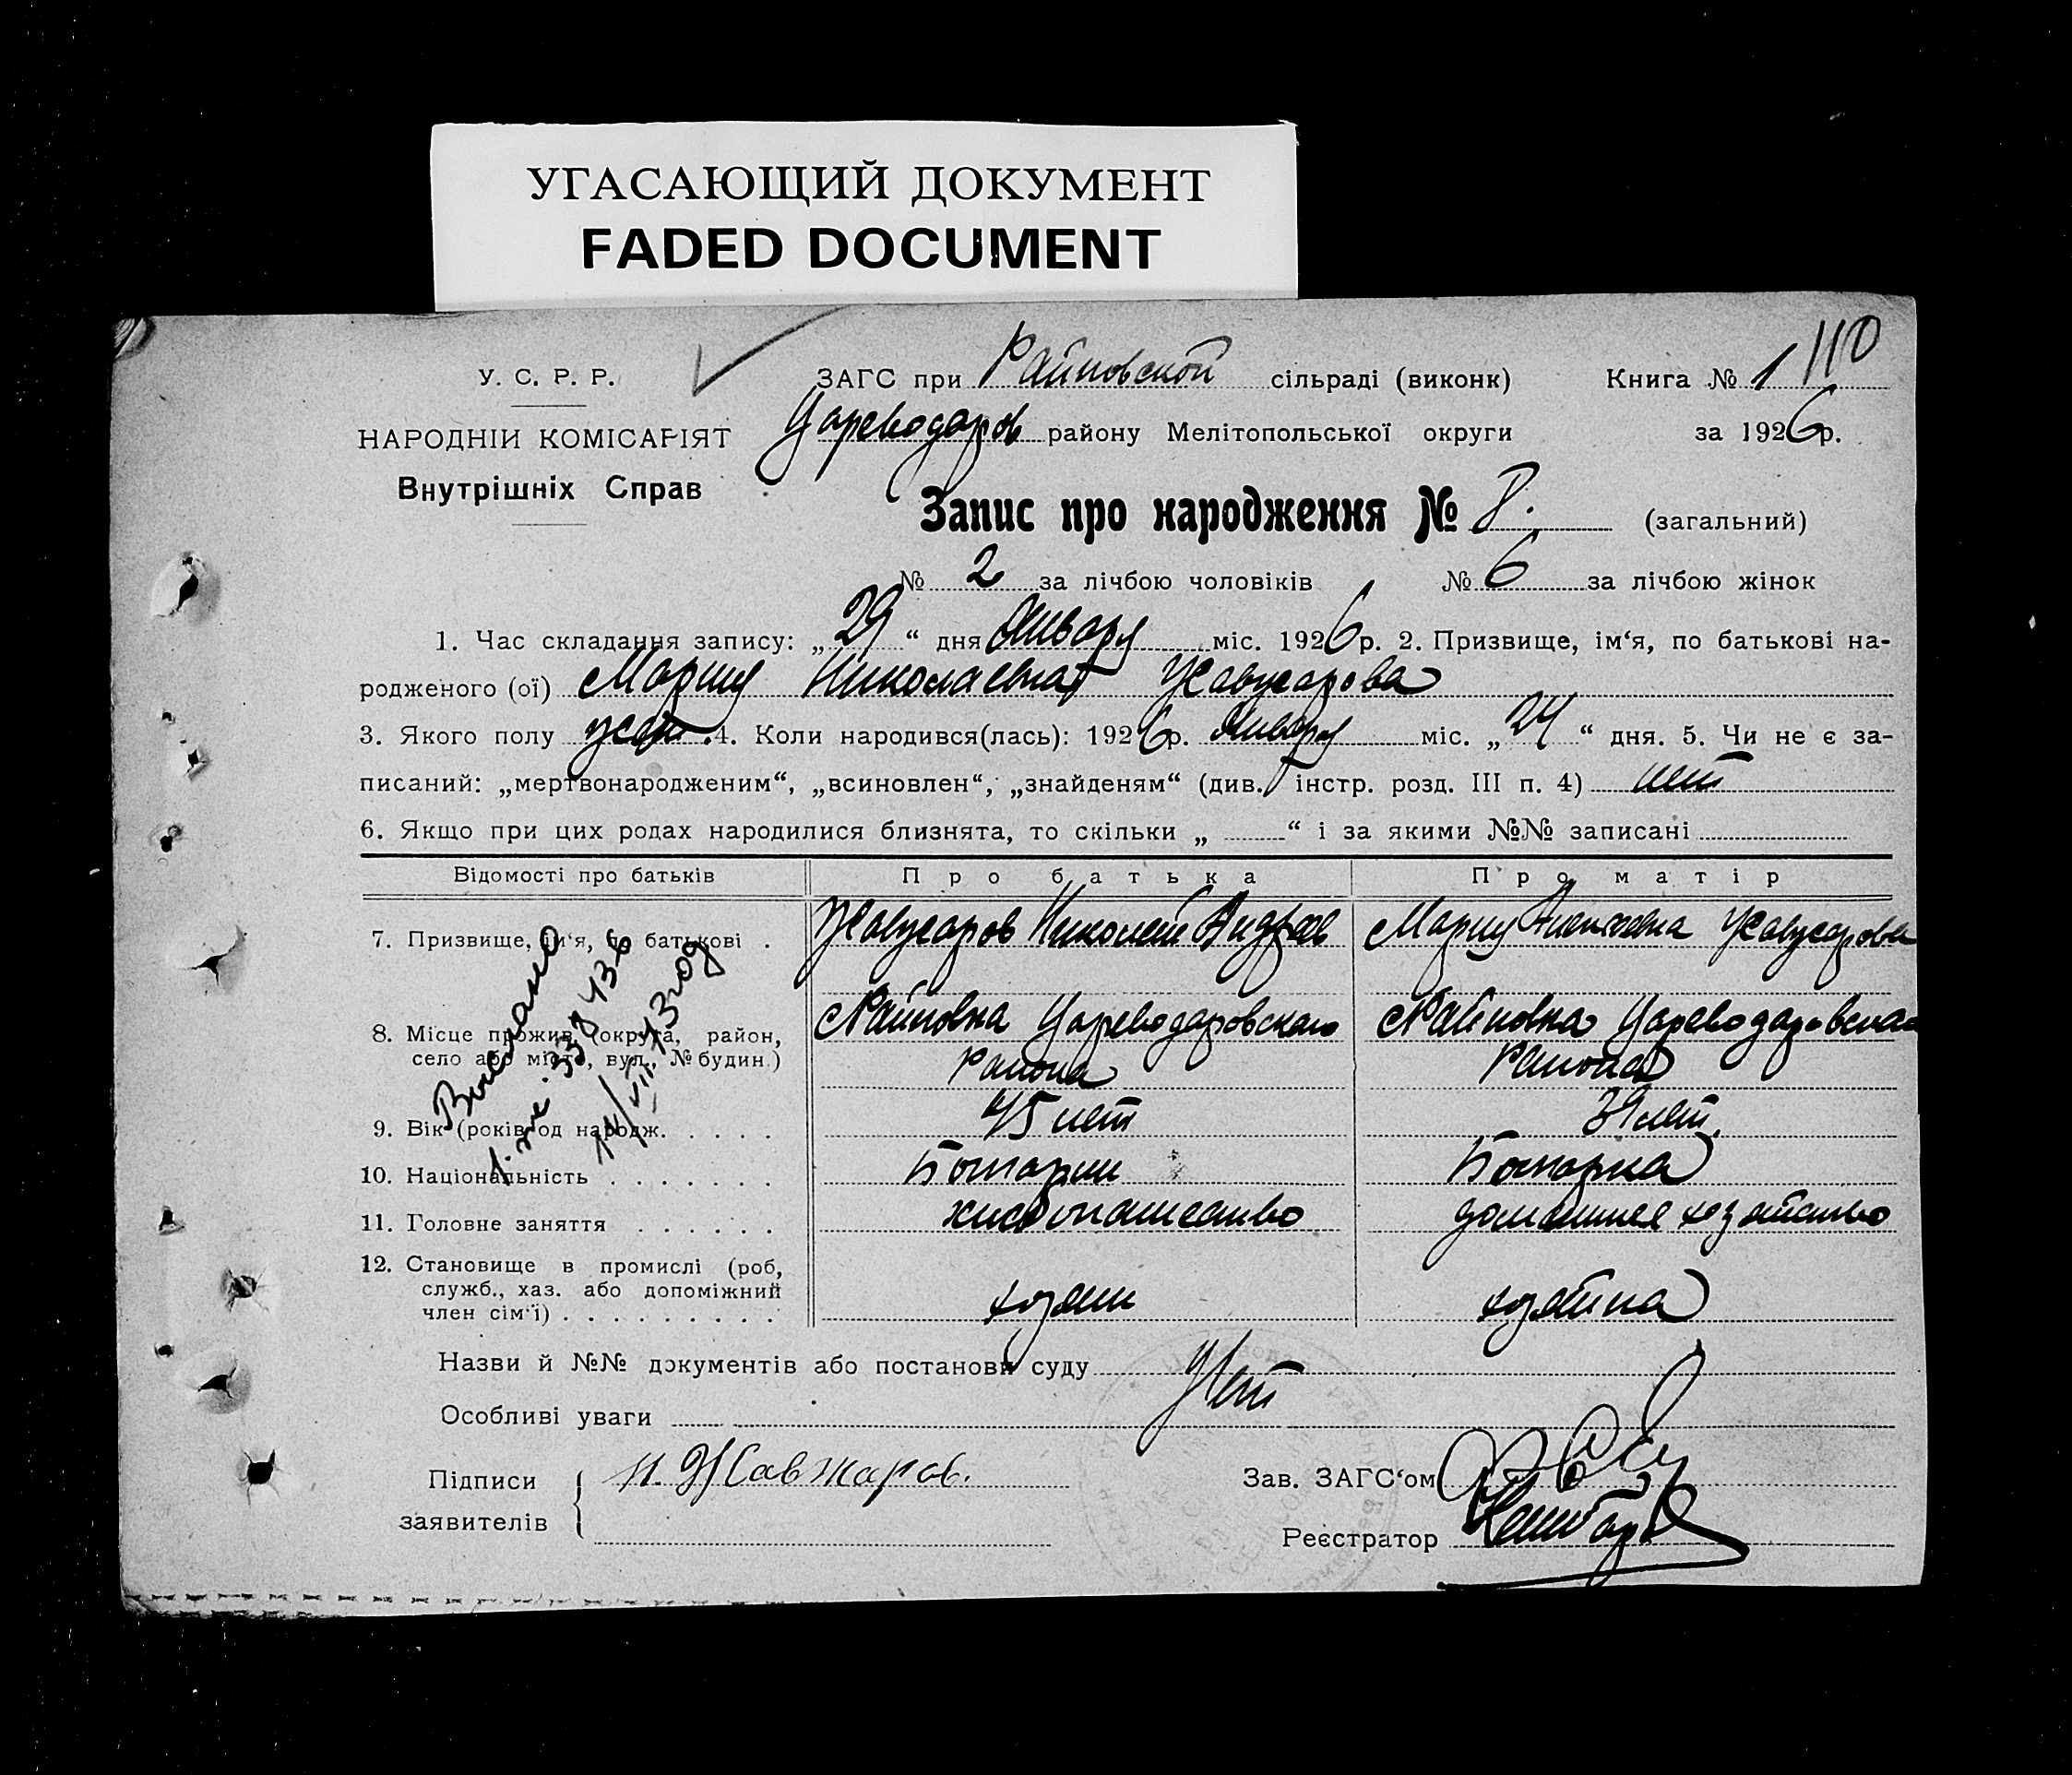 УГАСАЮЩИЙ ДОКУМЕНТ
FADED DOCUMENT
110
У. С. Р. Р.
НАРОДНІЙ КОМІСАРІЯТ
Внутрішніх Справ
ЗАГС при Райновской сільраді (виконк) Книга № 1
Цареводаров району Мелітопольської округи за 1926р.
Запис про народження № 8. (загальний)
№ 2 за лічбою чоловіків № 6 за лічбою жінок
1. Час складання запису: „29“ дня Января міс. 1926р. 2. Призвище, ім‘я, по батькові на-
родженого (ої) Мария Николаевна Жавжарова
3. Якого полу жен. 4. Коли народився(лась): 1926р. Января міс. „24“ дня. 5. Чи не є за-
писаний: „мертвонародженим“, „всиновлен“, „знайденям“ (див. інстр. розд. III п. 4) нет
6. Якщо при цих родах народилися близнята, то скільки „ “ і за якими №№ записані
Відомості про батьків Про батька Про матір
7. Призвище, ім‘я, по батькові . Жавжаров Николай Мария Жавжарова
8. Місце прожив. (округа, район, село або місто, вул., № будин.) с Райновка Цареводаровского района с Райновка района
9. Вік (років од народж. . . . . . 45 лет лет.
10. Національність . . . . . . . Болгарин Болгарка
11. Головне заняття . . . . . . хлебопашество домашнее хозяйство
12. Становище в промислі (роб, служб., хаз. або допоміжний член сім‘ї) . . . . . . . . . хозяин хозяйка
Выслано
14/VII 43 год
Назви й №№ документів або постанови суду Нет
Особливі уваги
Підписи заявителів Н. Жавжаров.
Зав. ЗАГС‘ом
Реєстратор